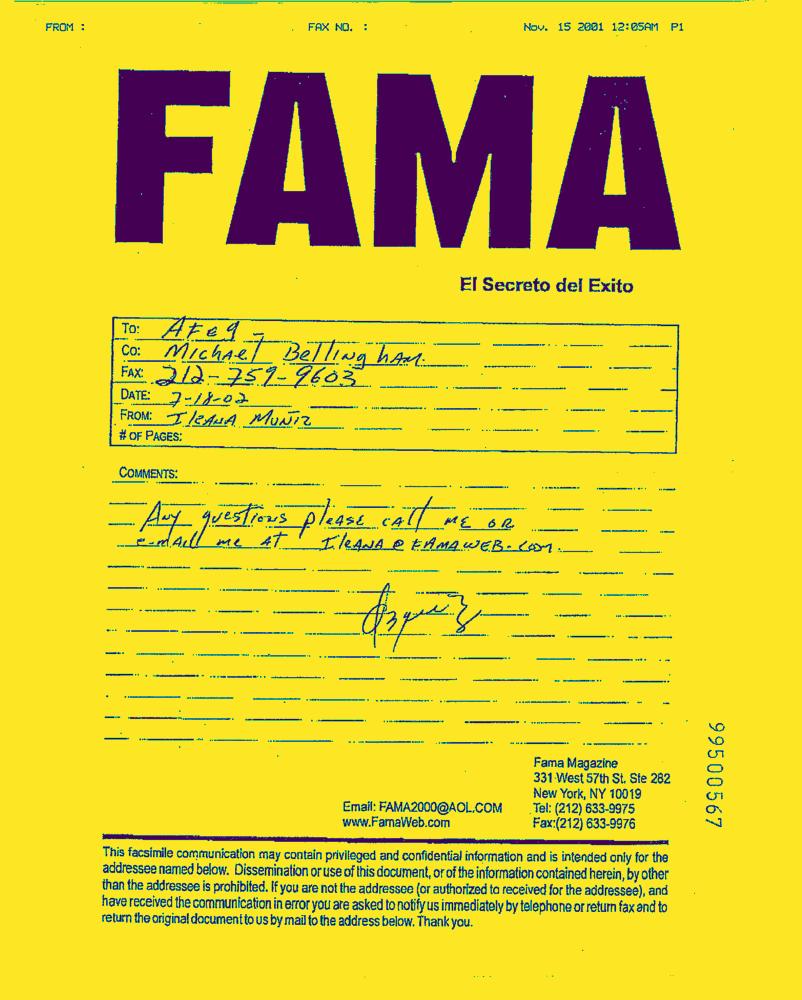 FROM : FAX NO. : Nov. 15 2001 12:05AM P1
FAMA
El Secreto del Exito
To:
Co: Michael Bellingham.
FAX: 212-759-9603
DATE: 7-18-02
FROM: Ileana Muñiz
# OF PAGES:
COMMENTS:
Any questions please call me or
e-mail me at Ileana@FAMAWEB.COM.
Fama Magazine
331 West 57th St. Ste 262
New York, NY 10019
Email: FAMA2000@AOL.COM Tel: (212) 633-9975
www.FamaWeb.com Fax:(212) 633-9976
99500567
This facsimile communication may contain privileged and confidential information and is intended only for the
addressee named below. Dissemination or use of this document, or of the information contained herein, by other
than the addressee is prohibited. If you are not the addressee (or authorized to received for the addressee), and
have received the communication in error you are asked to notify us immediately by telephone or return fax and to
return the original document to us by mail to the address below. Thank you.